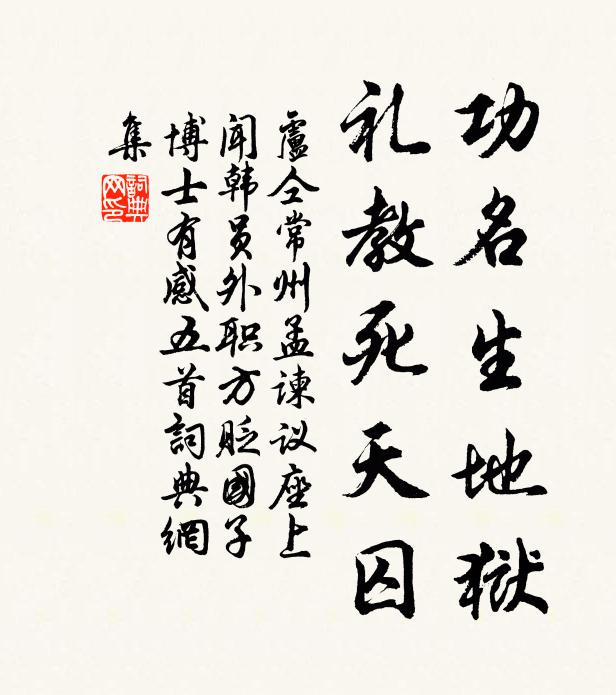 功名生地獄
礼教死天囚
盧仝常州孟諫议座上
闻韩员外职方贬國子
博士有感五首詞典網
集
詞典
网印